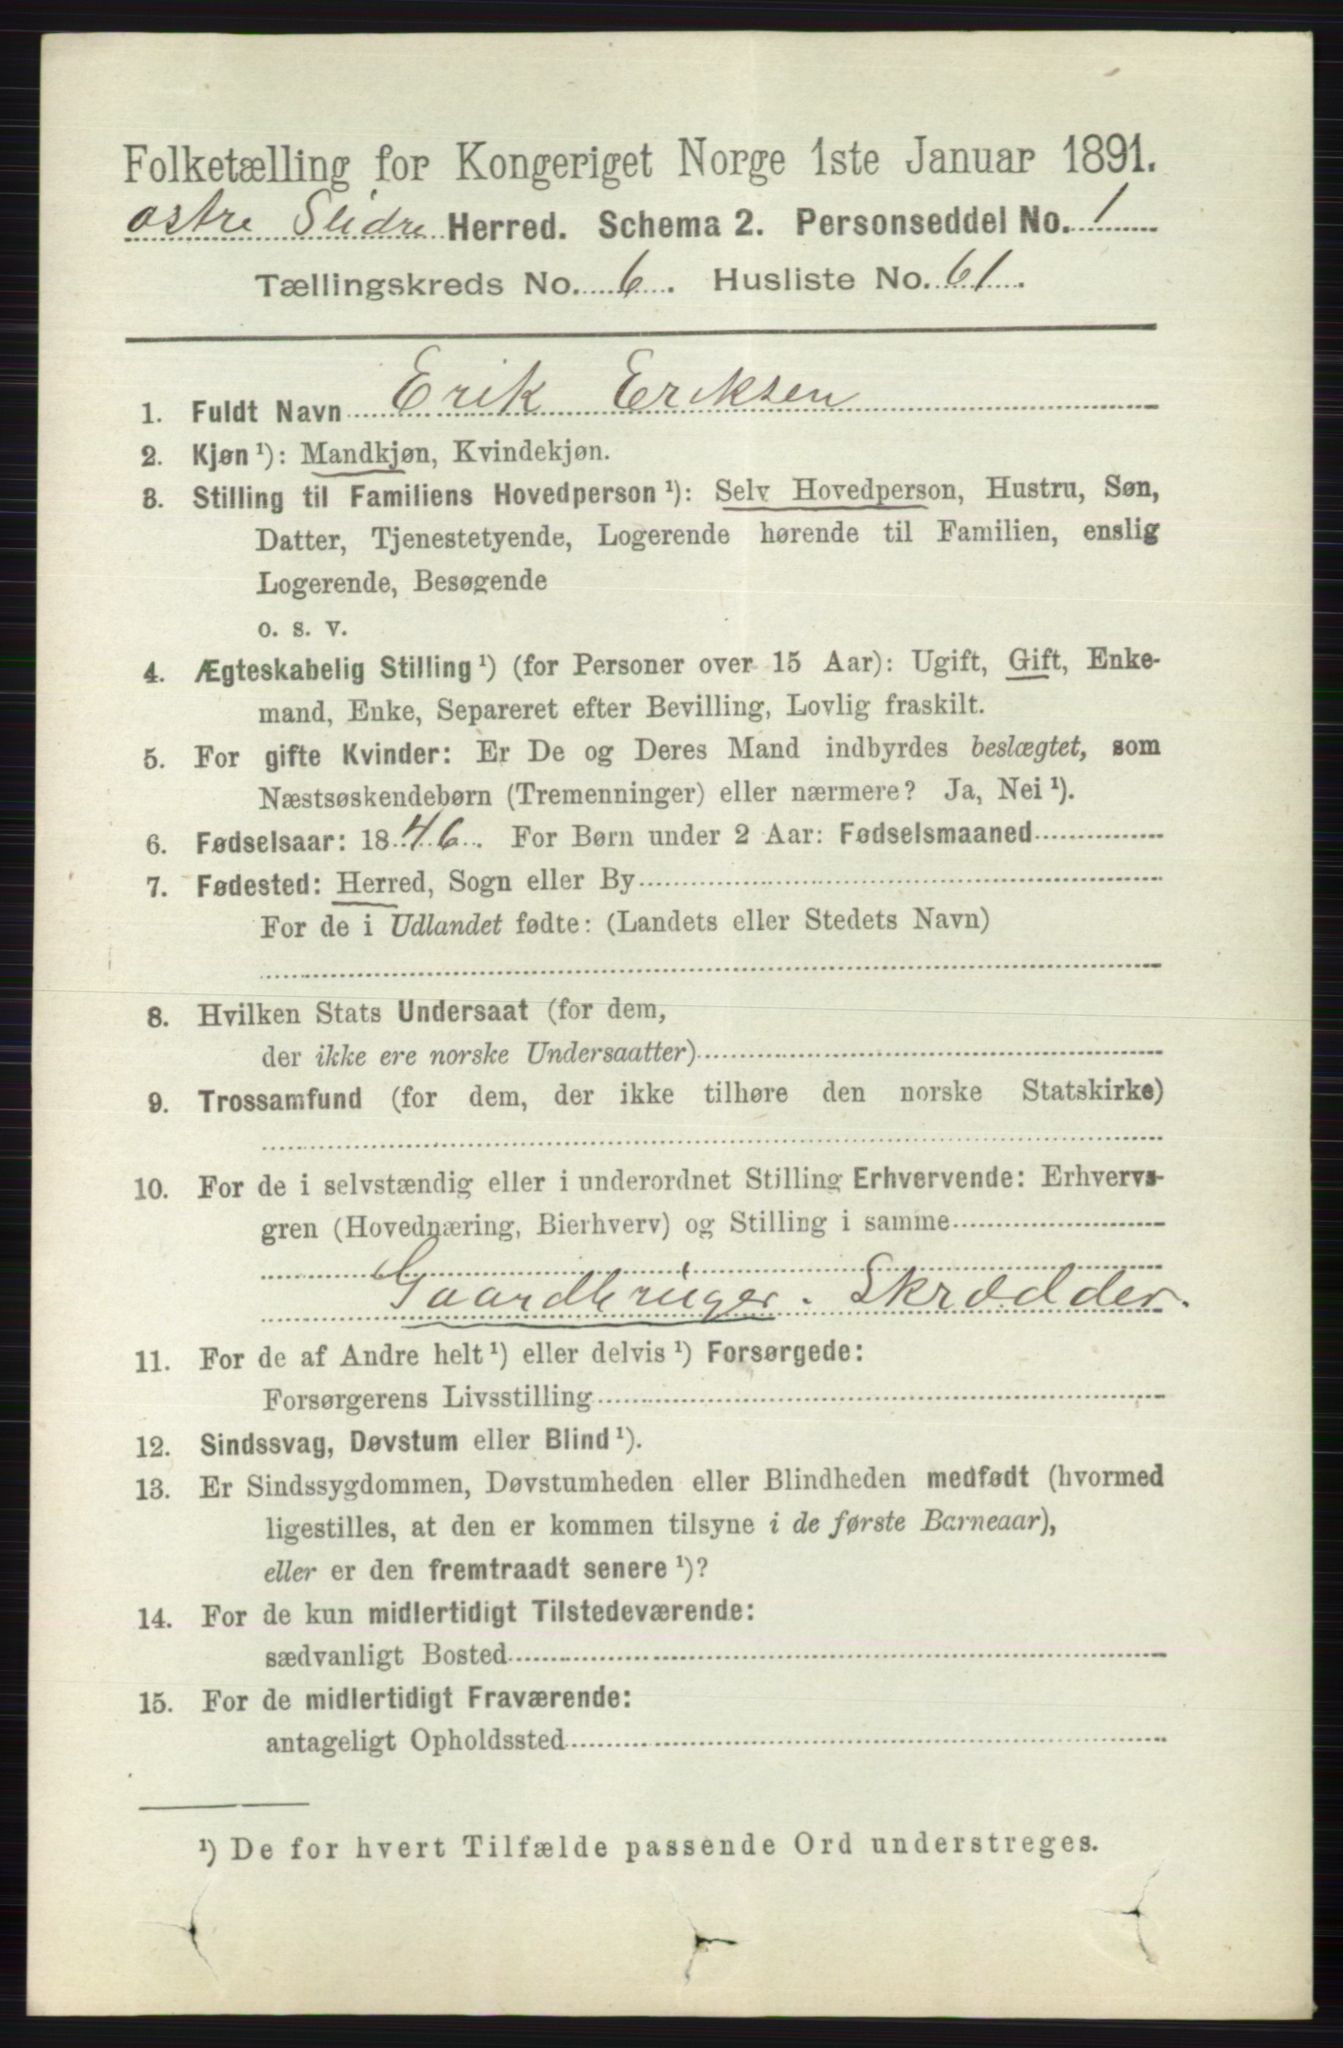 Folketælling for Kongeriget Norge 1ste Januar 1891.
østre Slidre Herred. Schema 2. Personseddel No. 1
Tællingskreds No. 6. Husliste No. 61.
1. Fuldt Navn Erik Eriksen
2. Kjøn ¹): Mandkjøn, Kvindekjøn.
3. Stilling til Familiens Hovedperson ¹): Selv Hovedperson, Hustru, Søn,
Datter, Tjenestetyende, Logerende hørende til Familien, enslig
Logerende, Besøgende
o. s. v.
4. Ægteskabelig Stilling ¹) (for Personer over 15 Aar): Ugift, Gift, Enke-
mand, Enke, Separeret efter Bevilling, Lovlig fraskilt.
5. For gifte Kvinder: Er De og Deres Mand indbyrdes beslægtet, som
Næstsøskendebørn (Tremenninger) eller nærmere? Ja, Nei ¹).
6. Fødselsaar: 1846. For Børn under 2 Aar: Fødselsmaaned
7. Fødested: Herred, Sogn eller By
For de i Udlandet fødte: (Landets eller Stedets Navn)
8. Hvilken Stats Undersaat (for dem,
der ikke ere norske Undersaatter)
9. Trossamfund (for dem, der ikke tilhøre den norske Statskirke)
10. For de i selvstændig eller i underordnet Stilling Erhvervende: Erhvervs-
gren (Hovednæring, Bierhverv) og Stilling i samme
Gaardbruger. Skrædder.
11. For de af Andre helt ¹) eller delvis ¹) Forsørgede:
Forsørgerens Livsstilling
12. Sindssvag, Døvstum eller Blind ¹).
13. Er Sindssygdommen, Døvstumheden eller Blindheden medfødt (hvormed
ligestilles, at den er kommen tilsyne i de første Barneaar),
eller er den fremtraadt senere ¹)?
14. For de kun midlertidigt Tilstedeværende:
sædvanligt Bosted
15. For de midlertidigt Fraværende:
antageligt Opholdssted
¹) De for hvert Tilfælde passende Ord understreges.